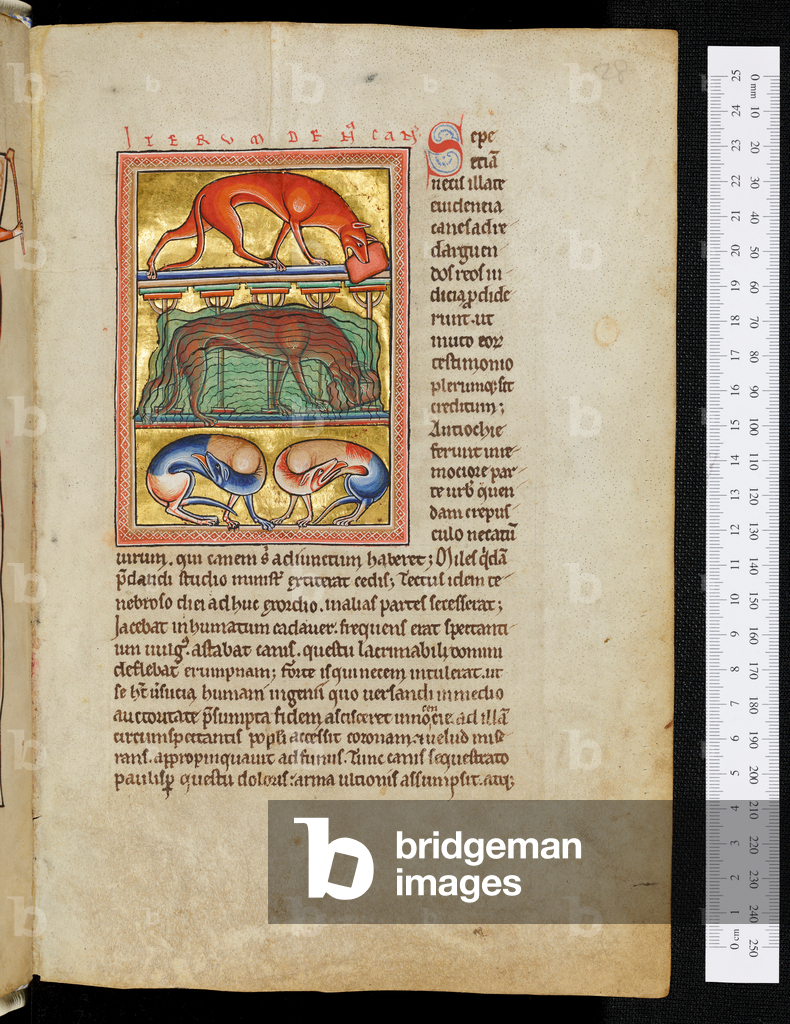 ITERVM DE H CAN
Sepe
etiā
necis illate
euidentia
canes ad re
darguen
dos reos in
dicia ꝓdide
runt. ut
muto eoꝝ
testimonio
plerumqꝫ sit
creditum;
Antiochie
ferunt in re
mociore par
te urbˢ quen
dam crepus
culo necatū
uirum. qui canem sᵇ adiunctum haberet; Miles qͥdā
p̄dandi studio ministʳ extiterat cedis; Tectus idem te
nebroso diei adhuc exordio. in alias partes secesserat;
Jacebat inhumatum cadauer. frequens erat spectanti
um uulgꝰ. astabat canis. questu lacrimabili domini
deflebat erumpnam; forte is qui necem intulerat. ut
se hͭt uͥsucia humani ingenii quo uersandi in medio
auctoritate p̄sumpta fidem ascisceret innocencie. ad illā
circumspectantis popli accessit coronam. ⁊ uelud mise
rans. appropinquauit ad funus. Tunc canis sequestrato
paulispꝑ questu doloris. arma ultionis assumpsit. atqꝫ
28
bridgeman
images
0 mm 10 20 30 40 50 60 70 80 90 100 110 120 130 140 150 160 170 180 190 200 210 220 230 240 250
0 cm 1 2 3 4 5 6 7 8 9 10 11 12 13 14 15 16 17 18 19 20 21 22 23 24 25